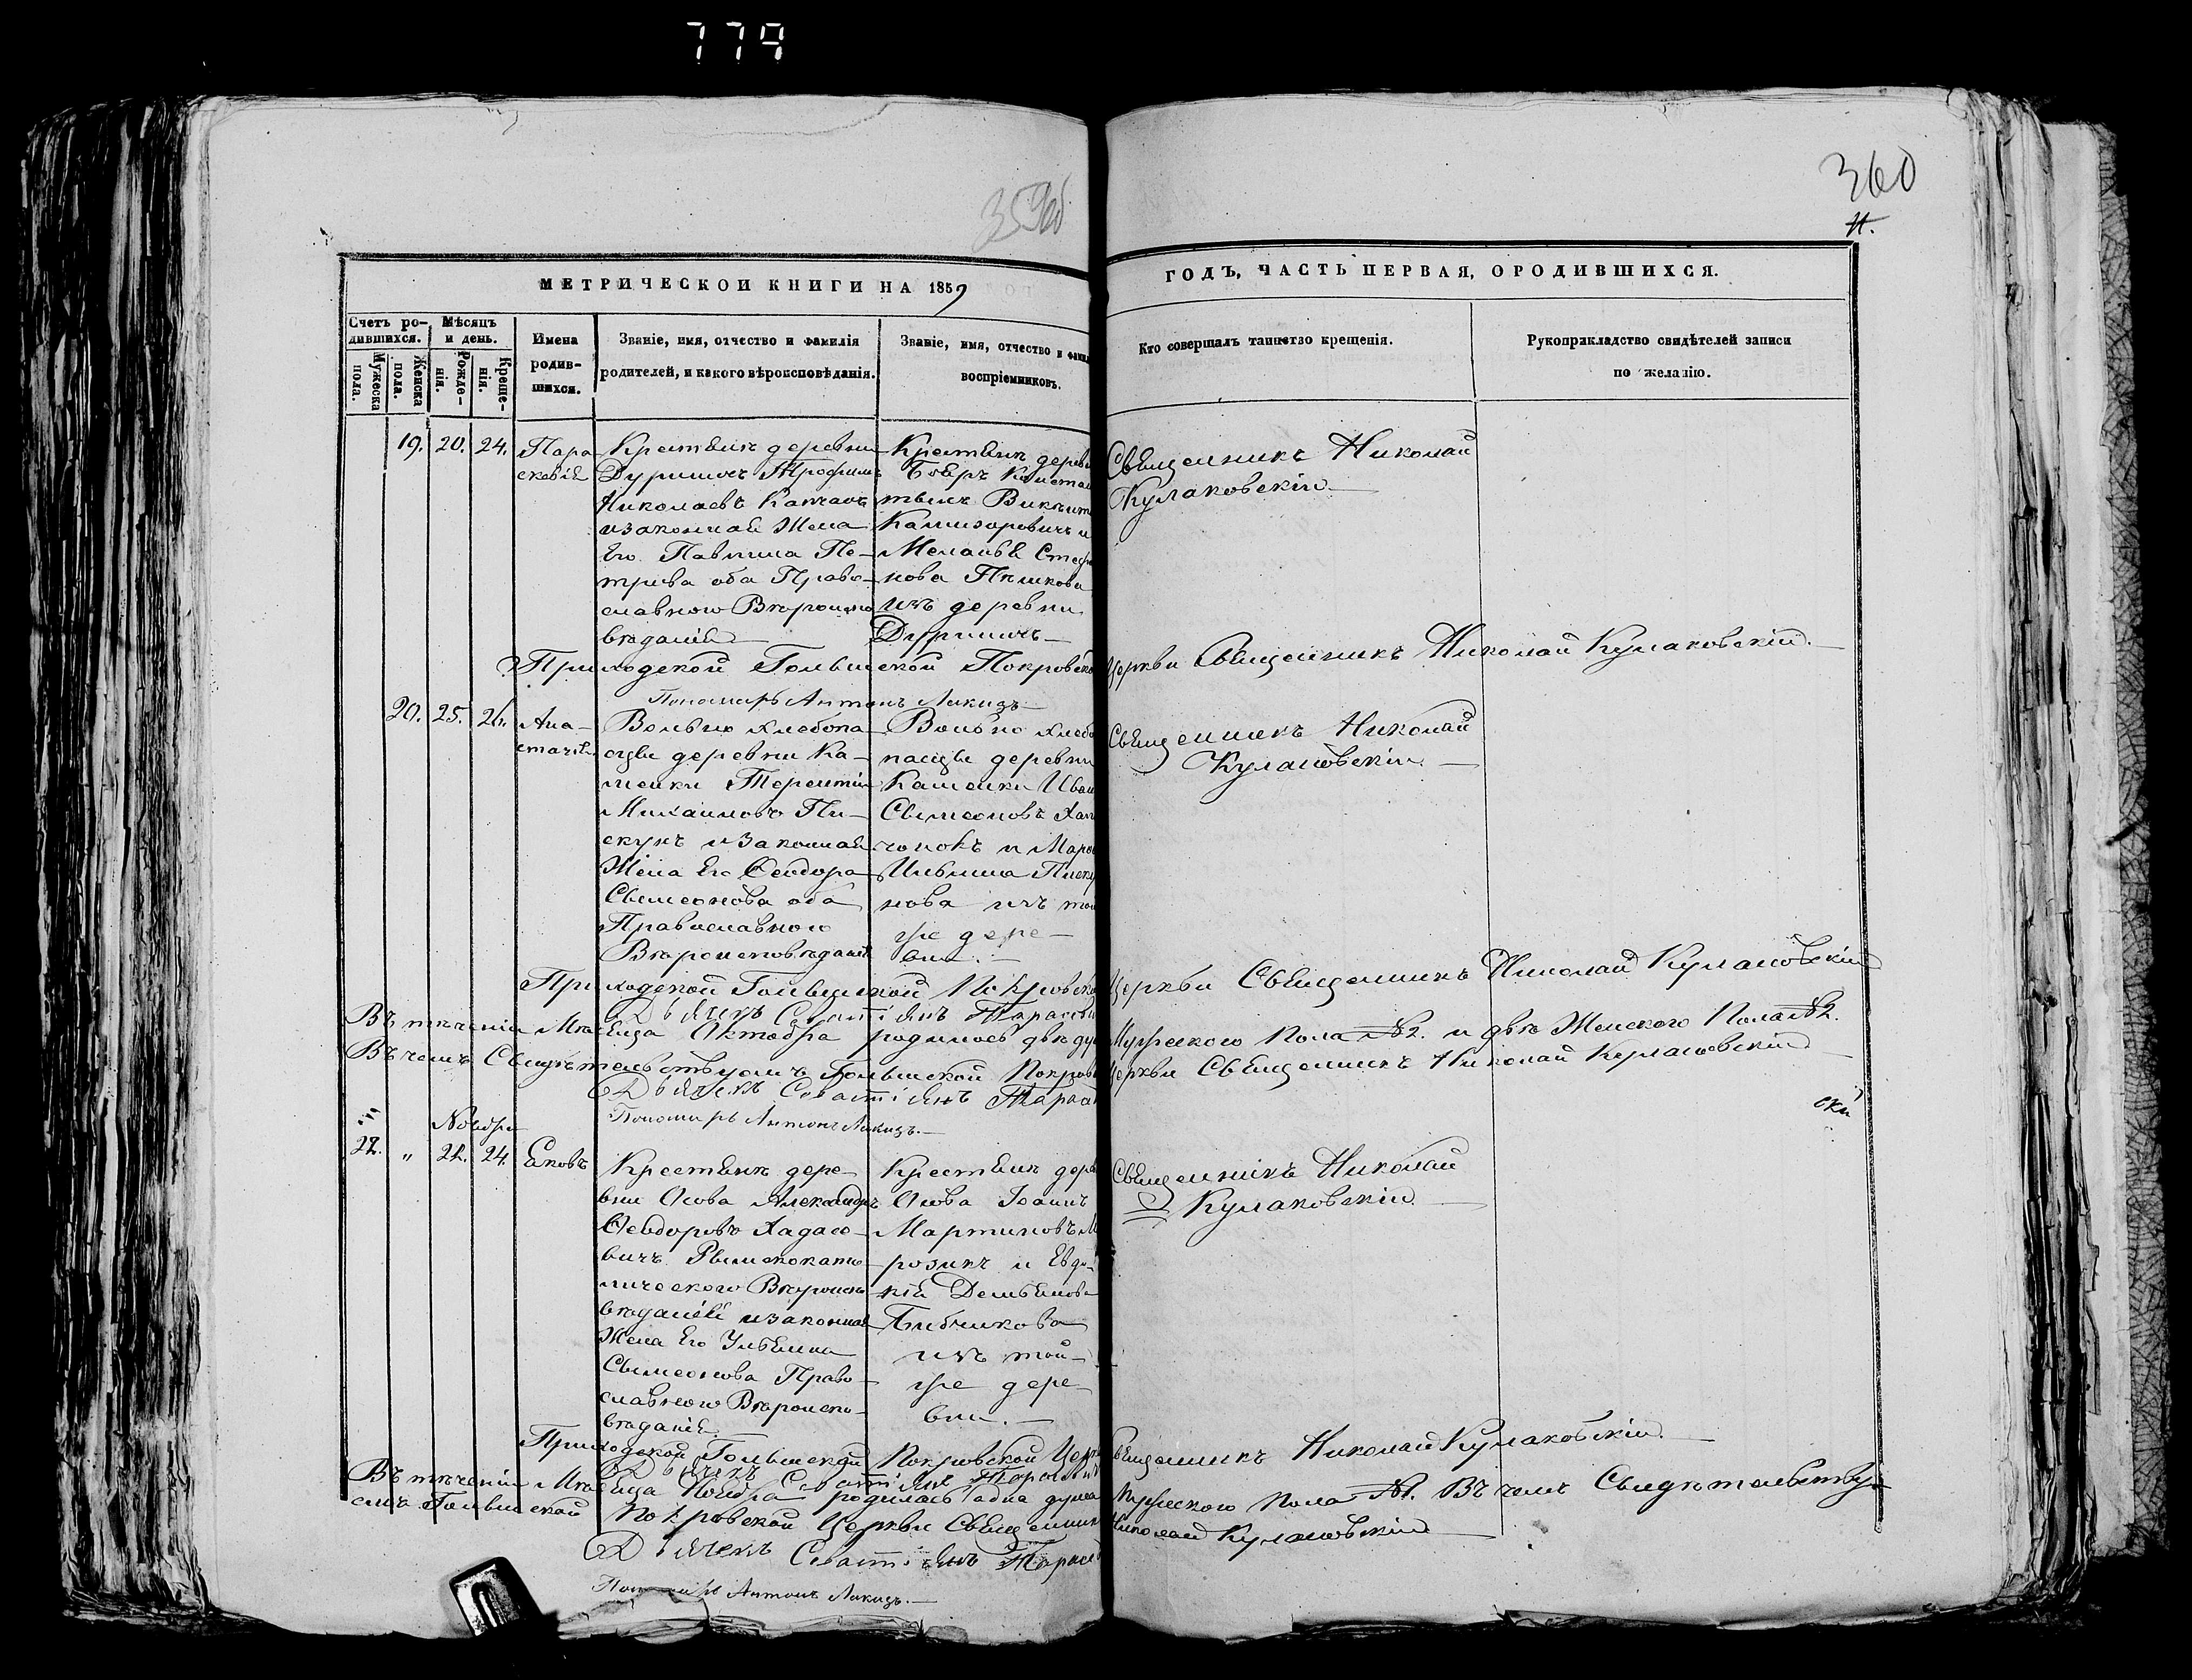 779
359об
360
11.
МЕТРИЧЕСКОЙ КНИГИ НА 1859
ГОДЪ, ЧАСТЬ ПЕРВАЯ, О РОДИВШИХСЯ.
Счетъ ро-
дившихся.
Мужеска
пола.
Женска
пола.
Мѣсяцъ
и день.
Рожде-
нія.
Креще-
нія.
Имена
родив-
шихся.
Званіе, имя, отчество и фамилія
родителей, и какого вѣроисповѣданія.
Званіе, имя, отчество и фами
воспріемниковъ.
Кто совершалъ таинство крещенія.
Рукоприкладство свидѣтелей записи
по желанію.
19. 20. 24.
Пара-
скевія
Крестьянъ деревни
Николаевъ
и законная Жена
Его Павлина Пе-
трова оба Право-
славного Вѣроиспо
вѣданія
Крестьянъ дерев
и
нова
изъ деревни
Священникъ Николай
Кулаковскій
Приходской Покровской Церкви Священникъ Николай Кулаковскій.
Пономарь Антонъ
20. 25. 26.
Ана-
стасія
Вольно хлебопа-
шцы деревни Ка-
менки Терентій
Михаиловъ Пи-
скунъ и законная
Жена Его Ѳеодора
Свимеонова оба
Православного
Вѣроисповѣданія
Вольно хлебо
пашцы деревни
Каменки Иван
Свимеоновъ
и
Ильина Писку
нова изъ той
же дере-
вни.
Священникъ Николай
Кулаковскій
Приходской Покровской Церкви Священникъ Николай Кулаковскій
Дьячекъ
Въ теченіи Месяца Октобра родилось двѣ ду Мужеского Пола №2. и двѣ Женского Пола №2.
Въ чемъ Свидѣтельствуемъ Покров Церкви Священникъ Николай Кулаковскій
Дьячекъ
Пономарь Антонъ
ски
Ноября
22. „ 22. 24.
Яковъ
Крестьянъ дере-
вни Осова Александръ
Ѳеодоровъ
вичъ Римскокато-
лическаго Вѣроиспо
вѣданія и законная
Жена Его Ульяна
Свимеонова Право-
славного Вѣроиспо-
вѣданія
Крестьянъ дерев
Осова Іоаннъ
Мартиновъ М
розикъ и Евдо-
кія Демьянова
изъ той-
же дере-
вни.
Священникъ Николай
Кулаковскій
Приходской Покровской Церк Священникъ Николай Кулаковскій.
Дьячекъ
Въ теченіи Месяца Ноября родилась одна душа Мужеского Пола №1. Въ чемъ Свидѣтельству-
емъ Покровской Церкви Священникъ Николай Кулаковскій
Дьячекъ
Пономарь Антонъ